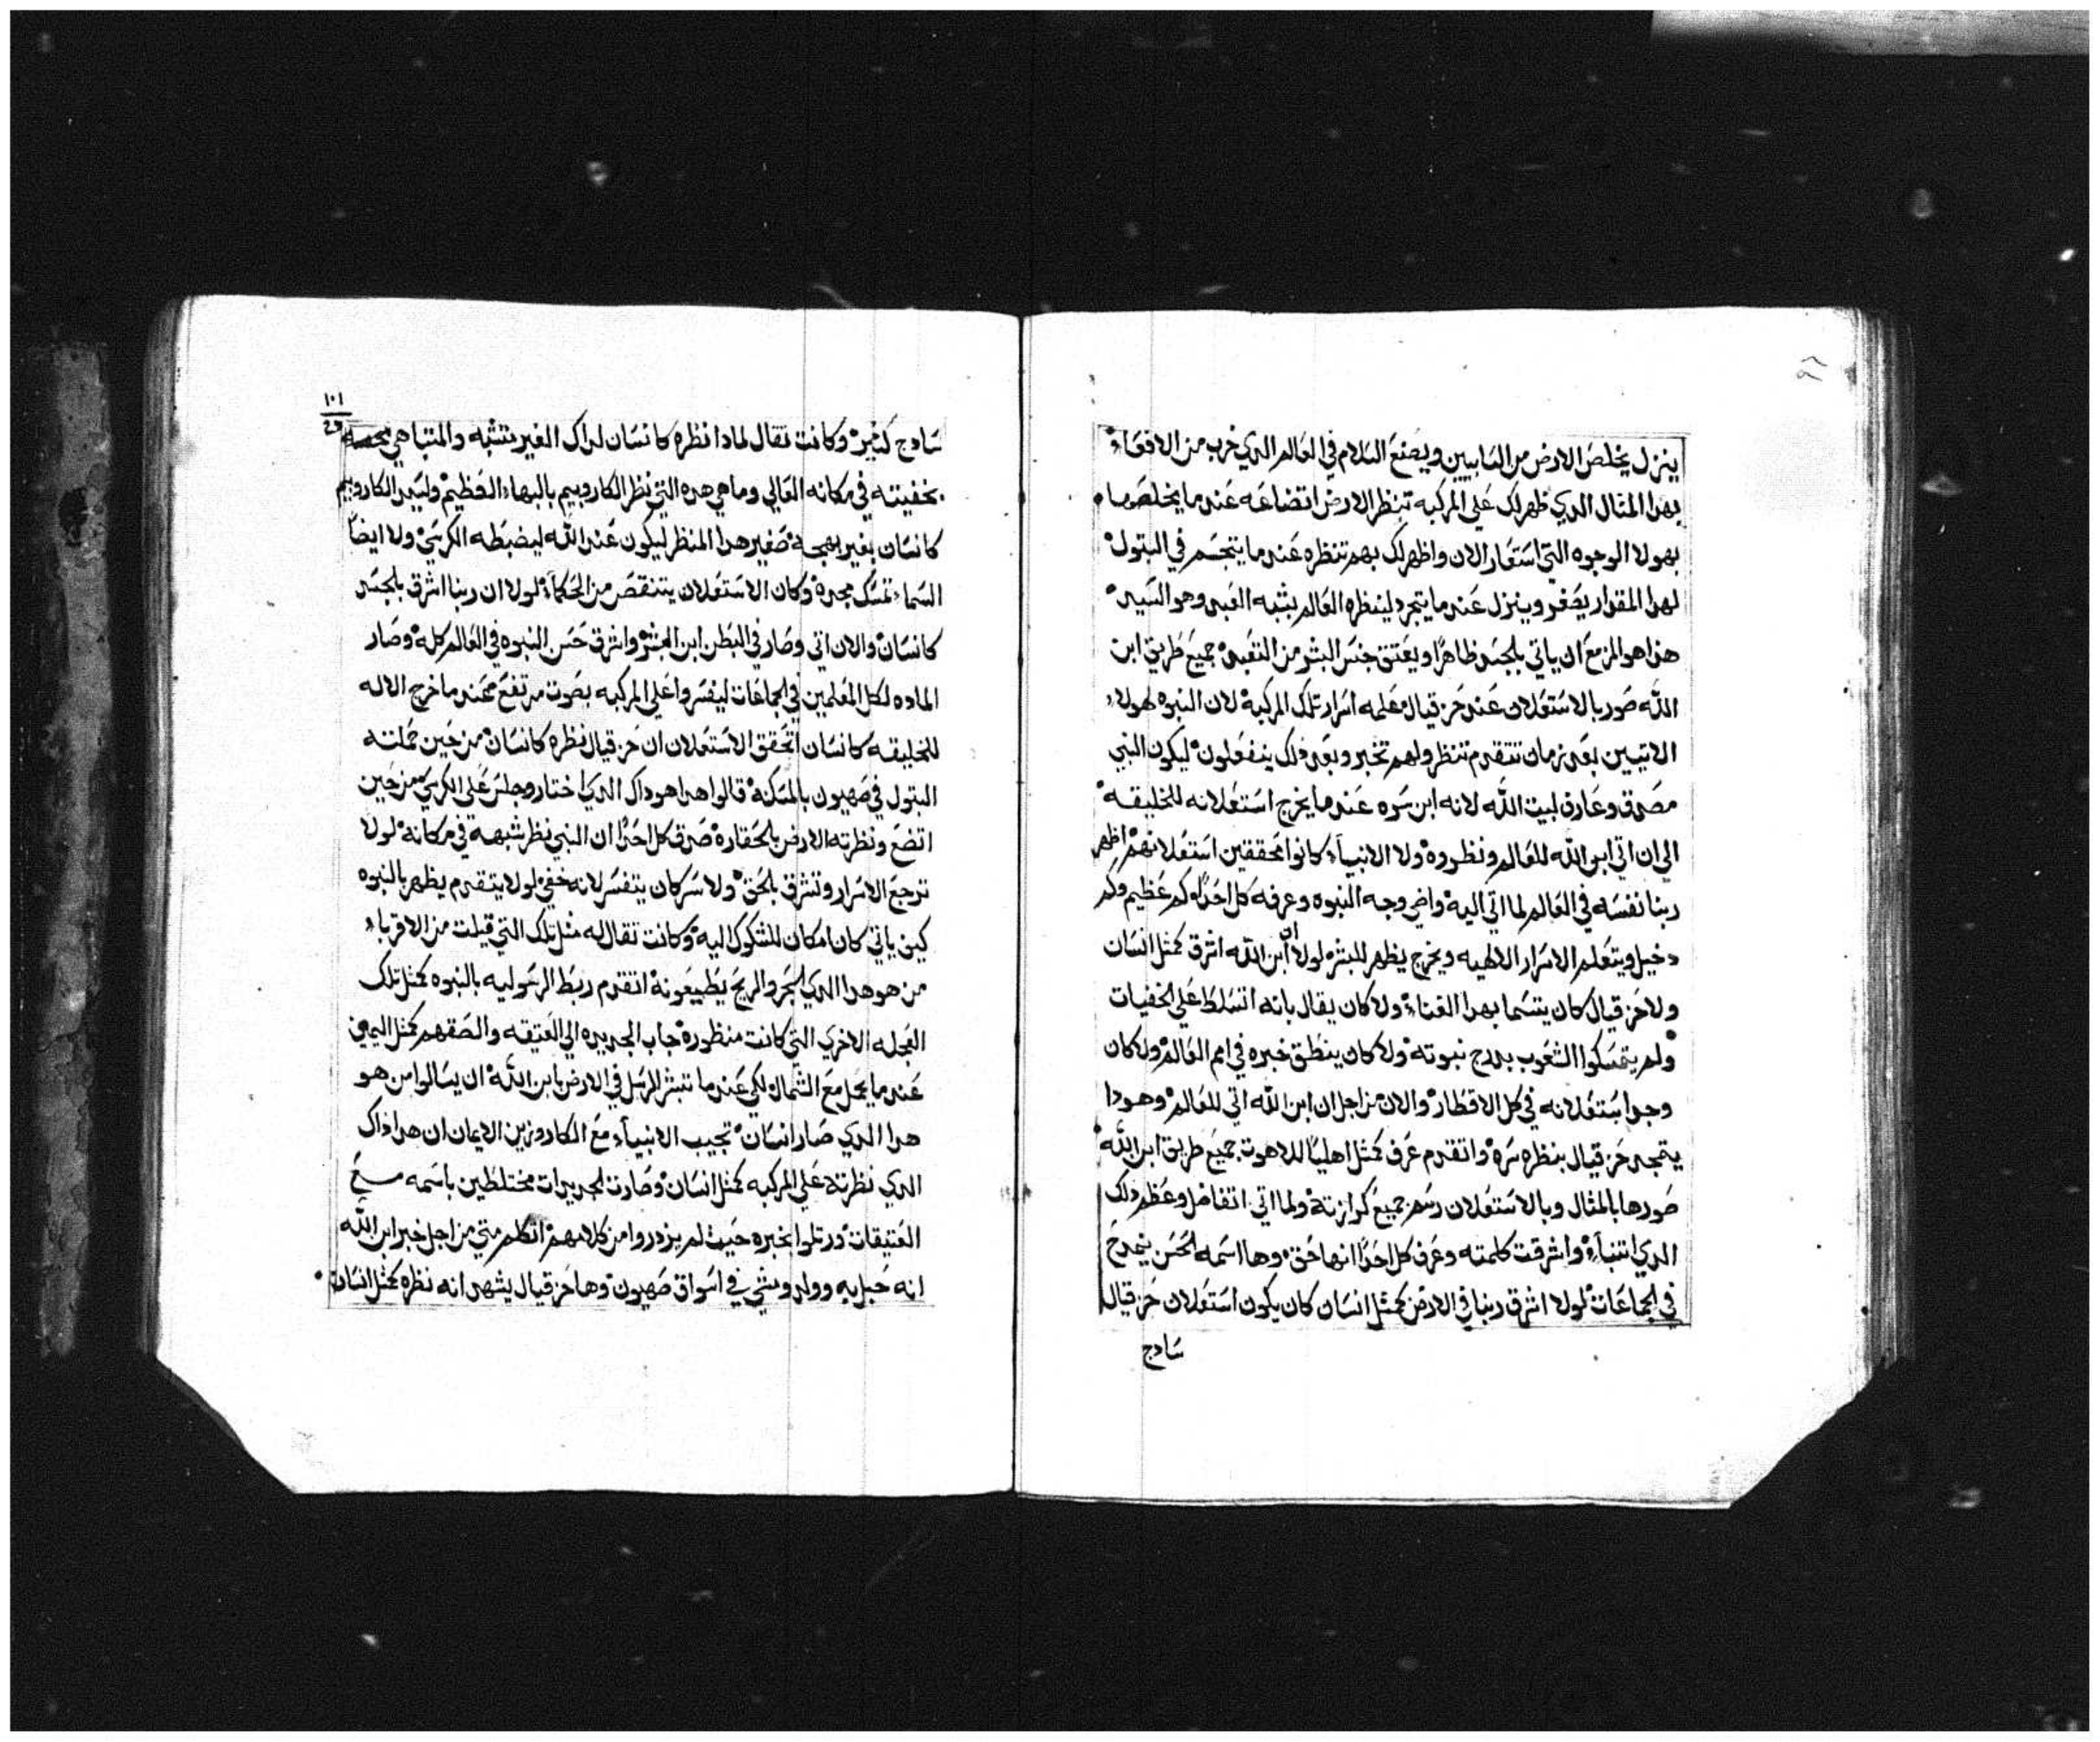 ينزل يخلص الارض من السابيين ويصنع السلام في العالم الدي خرب من الافعاء
بهدا المثال الدي ظهر لك على المركبه تنظر الارض اتضاعه عندما يخلصها
بهولا الوجوه التي استعار الان واظهر لك بهم تنظره عندما يتجسم في البتول
لهدا المقدار يصغر وينزل عندما يتجرد لينظره العالم بشبه العبد وهو السيد
هدا هو المزمع ان ياتي بالجسد ظاهرًا ويعتق جنس البشر من التعبد جميع طريق ابن
الله صور بالاستعلان عند حزقيال معلمه اسرار تلك المركبة لان النبوه لهولاء
الاتيين بعد زمان تتقدم تنظر ولهم تخبر وبعد دلك ينفعلون ليكون النبي
مصدق وعارف لبيت الله لانه ابن سره عندما يخرج استعلانه للخليقه
الي ان اتي ابن الله للعالم ونظروه ولا الانبياء كانوا محققين استعلانهم اظهر
ربنا نفسه في العالم لما اتي اليه واضي وجه النبوه وعرفه كل احدًا كم عظيم وكم
دخيل ويتعلم الاسرار الالهيه ويخرج يظهر للبشر لولا ان ابن الله اشرق كمثل انسان
ولا حزقيال كان يتسما بهدا الغناء ولا كان يقال بانه اتسلط على الخفيات
ولم يتمسكوا الشعوب بمدح نبوته ولا كان ينطق خبره في امم العالم ولا كان
وجد استعلانه في كل الاقطار والان من اجل ان ابن الله اتي للعالم وهودا
يتمجد حزقيال بنظره سره واتقدم عرف كمثل اهليًا للاهوت جميع طريق ابن الله
صورها بالمثال وبالاستعلان رسم جميع كرازته ولما اتي اتفاضل وعظم دلك
الدي اتنباء واشرقت كلمته وعرف كل احدًا انها حق وها اسمه لحسن ينمدح
في الجماعات لولا اشرق ربنا في الارض كمثل انسان كان يكون استعلان حزقيال
سادج
١٠١
سادج كثير وكانت تقال لمادا نظره كانسان لداك الغير متشبه والمتباهي
بخفيته في مكانه العالي وما هي هده التي نظر الكاروبيم بالبهاء العظيم ولسيد الكاروبيم
كانسان بغير بهجه صغير هدا المنظر ليكون عند الله ليضبطه الكرسي ولا ايضًا
السماء تمسك مجده وكان الاستعلان يتنقص من الحكماء لولا ان ربنا اشرق بالجسد
كانسان والان اتي وصار في البطن ابن البشر واشرق حسن النبوه في العالم كله وصار
الماده لكل المعلمين في الجماعات ليفسروا على المركبه بصوت مرتفع عندما خرج الاله
للخليقه كانسان اتحقق الاستعلان ان حزقيال نظره كانسان من حين حملته
البتول في صهيون بالمسكنه قالوا هدا هو داك الدي اختار وجلس على الكرسي من حين
اتضع ونظرته الارض بالحقاره صدق كل احدًا ان النبي نظر شبهه في مكانه لولا
ترجع الاسرار وتشرق بالحق ولا سر كان يتفسر لانه خفي لولا يتقدم يظهر بالنبوه
كيف ياتي كان امكان للشكوك اليه وكانت تقال له مثل تلك التي قيلت من الاقرباء
من هو هدا الدي البحر والريح يطيعونه اتقدم ربط الرسوليه بالنبوه كمثل تلك
العجله الاخري التي كانت منظوره جاب الجديده الي العتيقه والصقهم كمثل اليمين
عندما يحل مع الشمال لكي عندما تبشر الرسل في الارض بابن الله ان يسالوا من هو
هدا الدي صار انسان تجيب الانبياء مع الكاروزين الايمان ان هدا داك
الدي نظرته على المركبه كمثل انسان وصارت الجديدات مختلطين باسمه مع
العتيقات ورتلوا بخبره حيث لم يزدروا من كلامهم اتكلم متي من اجل خبر ابن الله
انه حبل به وولد ومشي في اسواق صهيون وها حزقيال يشهد انه نظره كمثل انسان